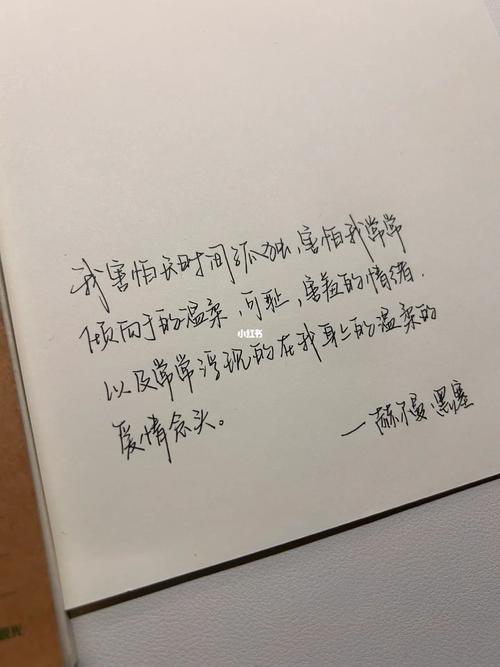 我害怕长时间孤独,害怕我常常
倾向于的温柔,可耻,害羞的情绪,
以及常常浮现的在我身上的温柔的
爱情念头。
一赫尔曼·黑塞
小红书
觀光